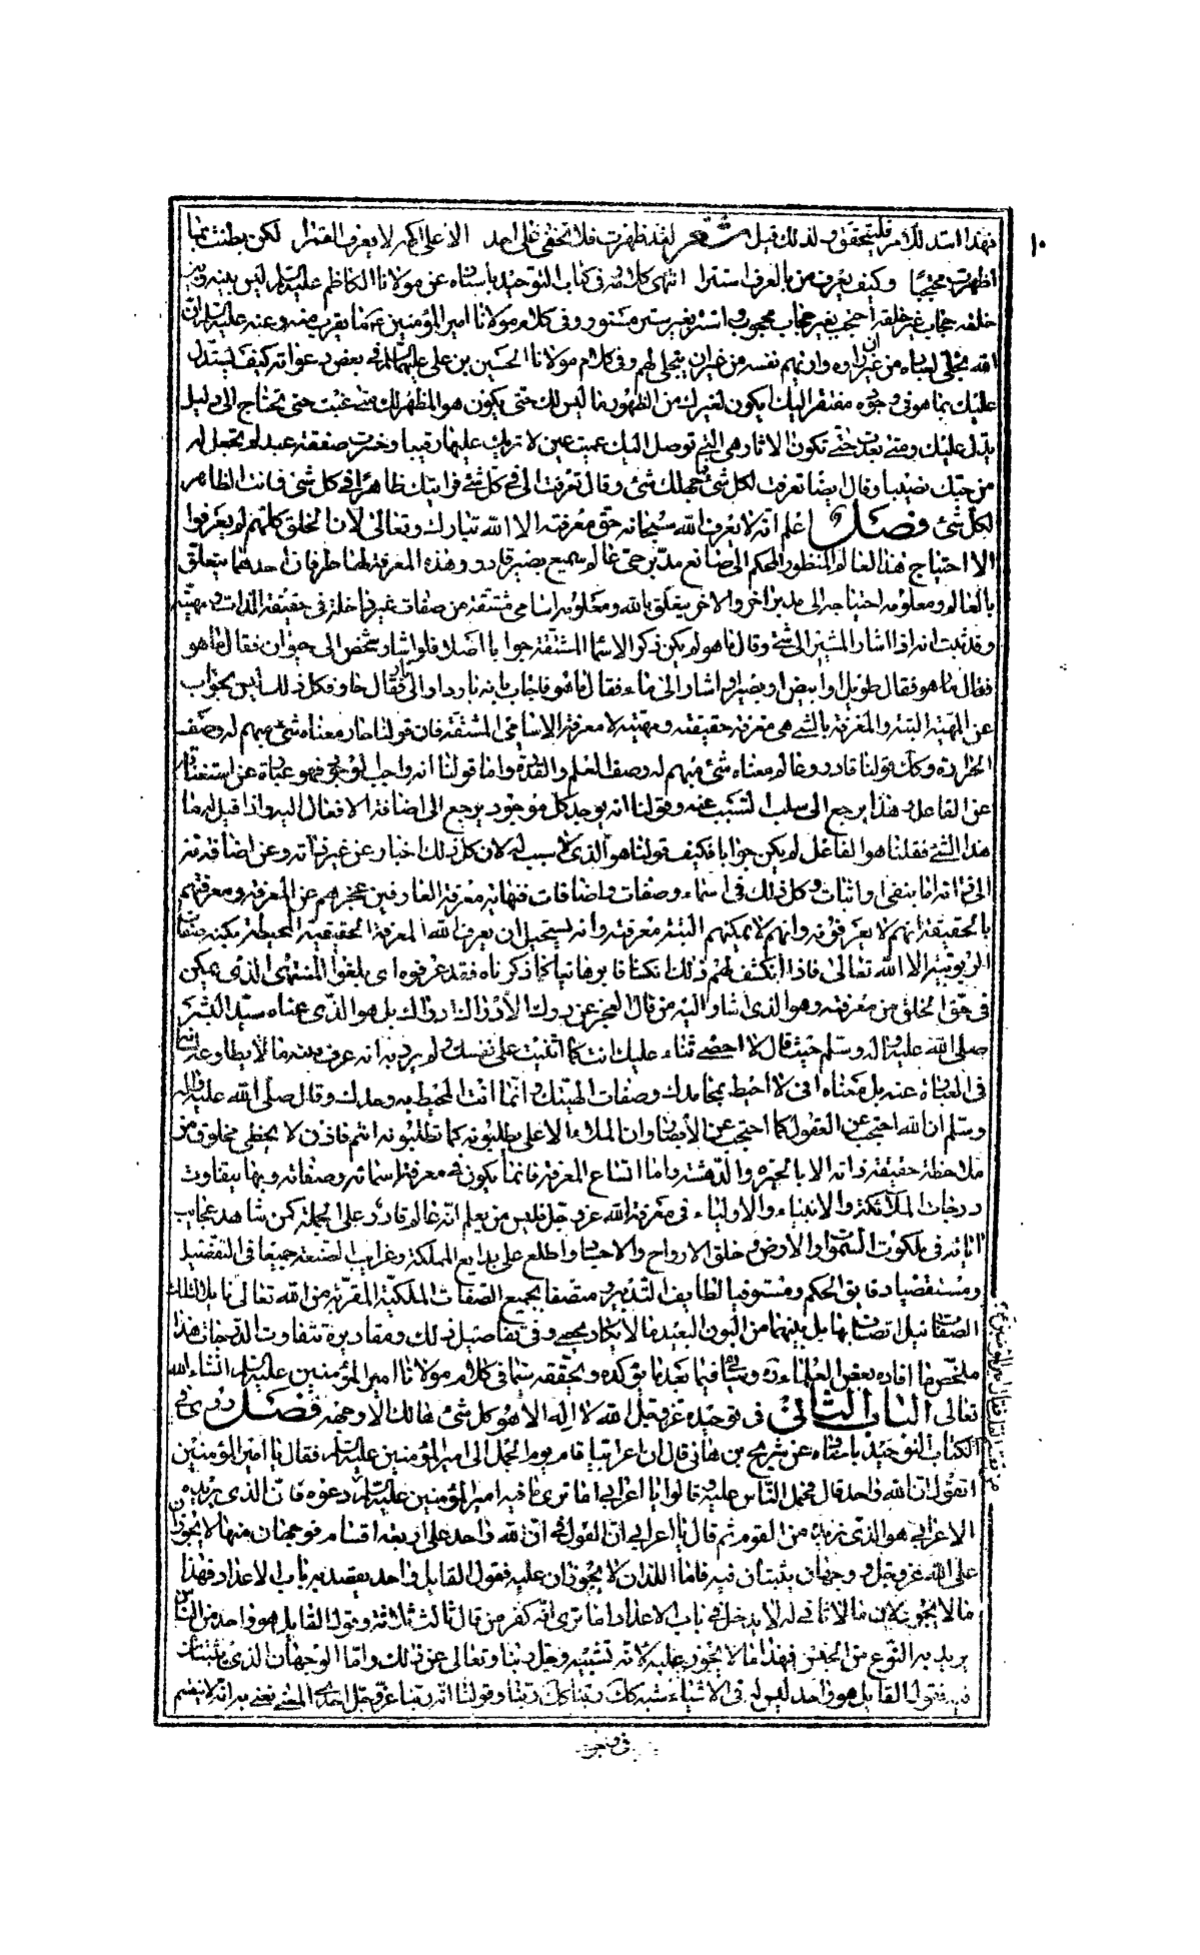 ١٠
فهذا استدلالا مر فليتحقق ولذلك قيل شعر لقد ظهرت فلا تخفى على احد الا على اكمه لا يعرف القمرا لكن بطنت بما
اظهرت محتجبا وكيف يعرف من بالعرف استترا انتهى كلامه وفى كتاب التوحيد باسناده عن مولانا الكاظم عليه السلم ليس بينه وبين
خلقه حجاب غير خلقه احتجب بغير حجاب محجوب واستتر بغير ستر مستور وفى كلام مولانا امير المؤمنين ع وعنه عليه السلم ان
الله تجلى لعباده من غير ان راوه واراهم نفسه من غير ان يتجلى لهم وفى كلام مولانا الحسين بن على عليهما السلم فى بعض دعواته كيف يستدل
عليك بما هو فى وجوده مفتقر اليك ايكون لغيرك من الظهور ما ليس لك حتى يكون هو المظهر لك متى غبت حتى تحتاج الى دليل
يدل عليك ومتى بعدت حتى تكون الاثار هى التى توصل اليك عميت عين لا تراك عليها رقيبا وخسرت صفقة عبد لم تجعل له
من حبك نصيبا وقال ايضا تعرفت لكل شئ فما جهلك شئ وقال تعرفت الى فى كل شئ فرايتك ظاهرا فى كل شئ فانت الظاهر
لكل شئ فصل اعلم انه لا يعرف الله سبحانه حق معرفته الا الله تبارك وتعالى لان الخلق كلهم لم يعرفوا
الا احتياج هذا العالم المنظور المحكم الى صانع مدبر حى عالم سميع بصير قادر وهذه المعرفة لها طرفان احدهما يتعلق
بالعالم ومعلومه احتياجه الى مدبر اخر والاخر يتعلق بالله ومعلومه اسامى مشتقة من صفات غير داخلة فى حقيقة الذات ومهيته
وقد ثبت انه اذا اشار المشير الى شئ وقال ما هو لم يكن ذكر الاسماء المشتقة جوابا اصلا فلو اشار شخص الى حيوان فقال ما هو
فقال ما هو فقال طويل او ابيض او بصير او اشار الى ماء فقال ما هو فاجاب بانه بارد او الى نار فقال حار فكل ذلك ليس بجواب
عن المهية البتة والمعرفة بالشئ هى معرفة حقيقته ومهيته لا معرفة الاسامى المشتقة فان قولنا حار معناه شئ مبهم له وصف
الحرارة وكذلك قولنا قادر وعالم معناه شئ مبهم له وصف العلم والقدرة واما قولنا انه واجب الوجود فهو عبارة عن استغنائه
عن الفاعل وهذا يرجع الى سلب السبب عنه وقولنا انه يوجد كل موجود يرجع الى اضافة الافعال اليه واذا قيل لنا ما
هذا الشئ فقلنا هو الفاعل لم يكن جوابا فكيف قولنا هو الذى لا سبب له لان كل ذلك اخبار عن غير ذاته وعن اضافة له
الى ذاته اما بنفى او اثبات وكل ذلك فى اسماء وصفات واضافات فنهاية معرفة العارفين عجزهم عن المعرفة ومعرفتهم
بالحقيقة انهم لا يعرفونه وانهم لا يمكنهم البتة معرفته وانه يستحيل ان يعرف الله المعرفة الحقيقية المحيطة بكنه صفات
الربوبية الا الله تعالى فاذا انكشف لهم ذلك انكشافا برهانيا كما ذكرناه فقد عرفوه اى بلغوا المنتهى الذى يمكن
فى حق الخلق من معرفته وهو الذى اشار اليه من قال العجز عن درك الادراك ادراك بل هو الذى عناه سيد البشر
صلى الله عليه واله وسلم حيث قال لا احصى ثناء عليك انت كما اثنيت على نفسك ولم يرد به انه عرف منه ما لا يطاوعه لسانه
فى العبارة عنه بل معناه انى لا احيط بمحامدك وصفات الهيتك وانما انت المحيط به وحدك وقال صلى الله عليه واله
وسلم ان الله احتجب عن العقول كما احتجب عن الابصار وان الملاء الاعلى يطلبونه كما تطلبونه انتم فاذن لا يحظى مخلوق من
ملاحظة حقيقة ذاته الا بالحيرة والدهشة واما اتساع المعرفة فانما يكون فى معرفة اسمائه وصفاته وبها يتفاوت
درجات الملائكة والانبياء والاولياء فى معرفة الله عز وجل فليس من يعلم انه عالم قادر على الجملة كمن شاهد عجايب
اياته فى ملكوت السموات والارض وخلق الارواح والاجساد واطلع على بدايع المملكة وغرايب الصنعة جميعا فى التفصيل
ومستقصيا دقايق الحكم ومستوفيا لطايف التدبير ومتصفا بجميع الصفات الملكية المقربة من الله تعالى نايلا لتلك
الصفات نيل اتصاف بها بل بينهما من البون البعيد ما لا يكاد يحصى وفى تفاصيل ذلك ومقاديره تتفاوت الدرجات هذا
ملخص ما افاده بعض العلماء وسياتى فيما بعد ما يؤكده ويحققه سيما فى كلام مولانا امير المؤمنين عليه السلم انشاء الله
تعالى الباب الثانى فى توحيده عز وجل الله لا اله الا هو كل شئ هالك الا وجهه فصل روى فى
الكتاب التوحيد باسناده عن شريح بن هانى قال ان اعرابيا قام يوم الجمل الى امير المؤمنين عليه السلم فقال يا امير المؤمنين
اتقول ان الله واحد قال فحمل الناس عليه وقالوا يا اعرابى اما ترى ما فيه امير المؤمنين عليه السلم دعوه فان الذى يريده
الاعرابى هو الذى نريده من القوم ثم قال يا اعرابى ان القول فى ان الله واحد على اربعة اقسام فوجهان منها لا يجوزان
على الله عز وجل ووجهان يثبتان فيه فاما اللذان لا يجوزان عليه فقول القايل واحد يقصد به باب الاعداد فهذا
ما لا يجوز لان ما لا ثانى له لا يدخل فى باب الاعداد اما ترى انه كفر من قال ثالث ثلاثة وقول القايل هو واحد من الناس
يريد به النوع من الجنس فهذا ما لا يجوز عليه لانه تشبيه وجل ربنا وتعالى عن ذلك واما الوجهان الذى يثبتان
فيه فقول القايل هو واحد ليس له فى الاشياء شبه كذلك ربنا وقولنا انه ربنا عز وجل احدى المعنى نعنى به انه لا ينقسم
فى وجود